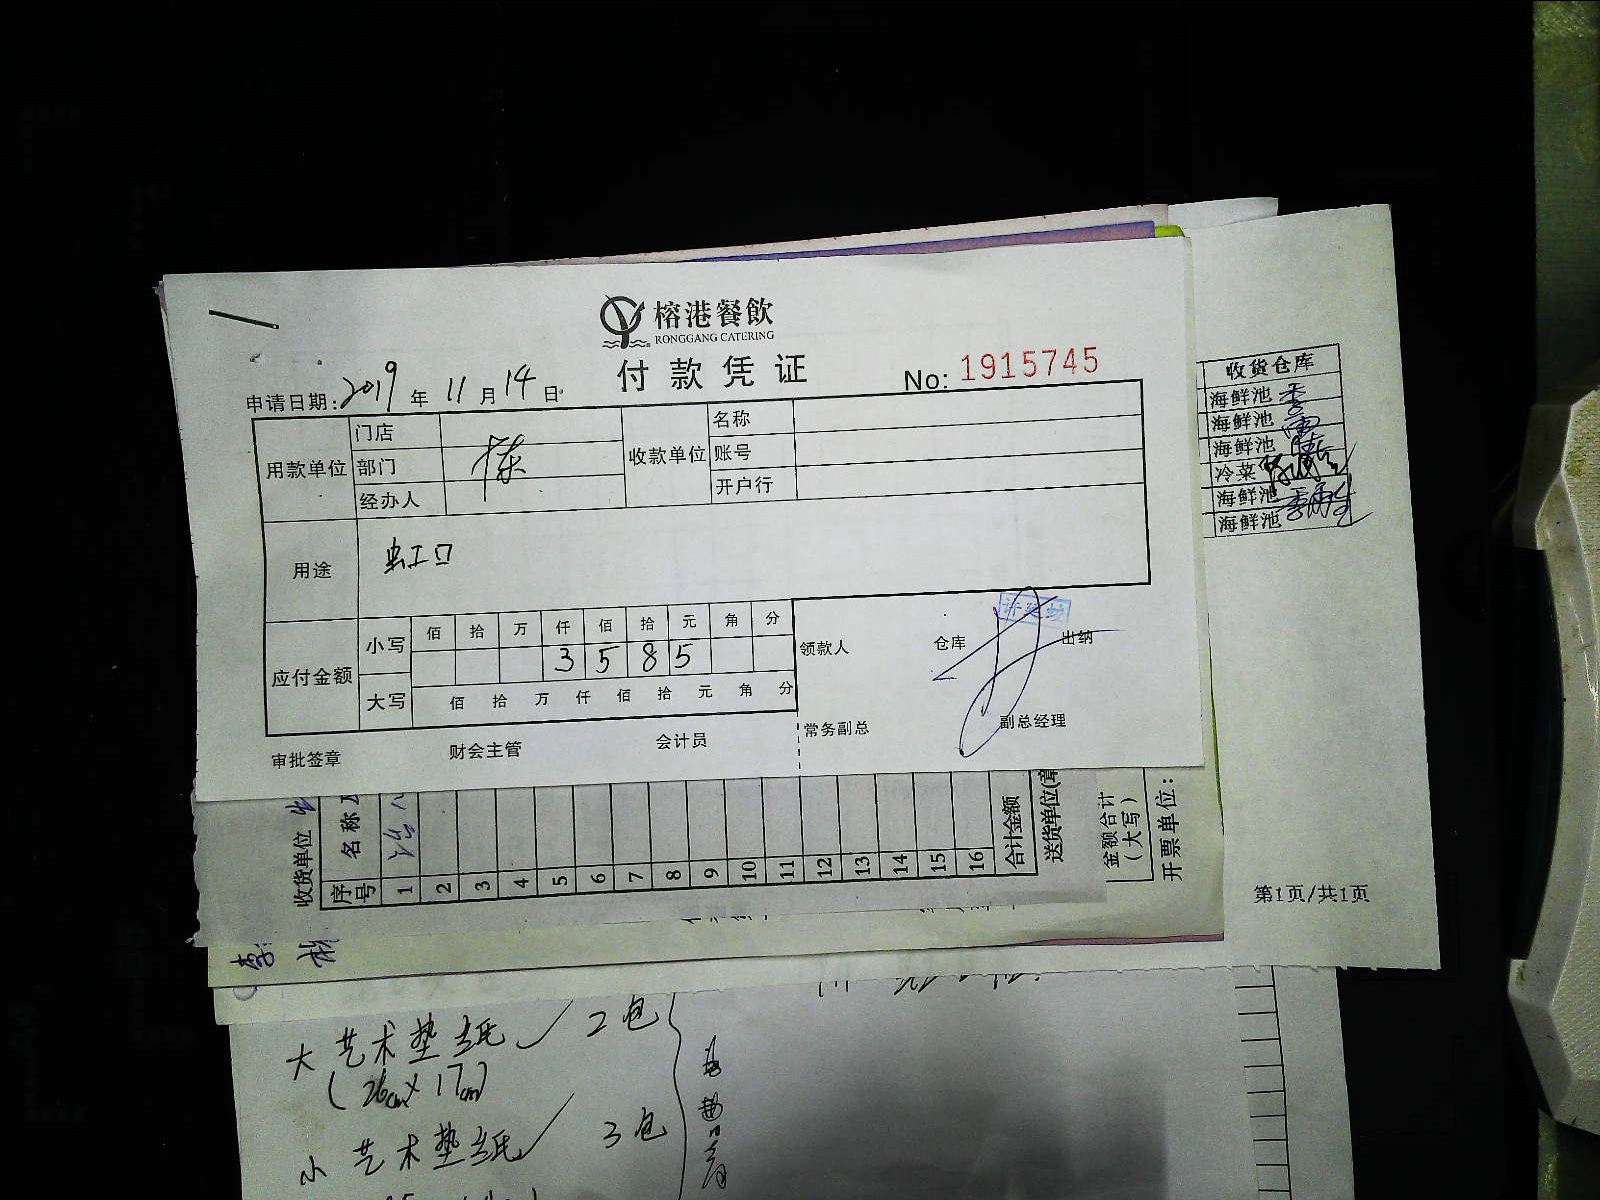 榕港餐飲
RONGGANG CATERING
付款凭证
No: 1915745
申请日期: 2019 年 11 月 14 日
用款单位 门店 收款单位 名称
部门 账号
经办人 开户行
用途 虹口
应付金额 小写 佰 拾 万 仟 佰 拾 元 角 分
3 5 8 5
大写 佰 拾 万 仟 佰 拾 元 角 分
领款人 仓库 出纳
常务副总 副总经理
审批签章 财会主管 会计员
收货仓库
海鲜池
海鲜池
海鲜池
冷菜
海鲜池
海鲜池
第1页/共1页
收货单位
序号 名称
1
2
3
4
5
6
7
8
9
10
11
12
13
14
15
16
合计金额
送货单位(章
金额合计
(大写)
开票单位:
大艺术垫纸 2包
(26cm×17cm)
小艺术垫纸 3包